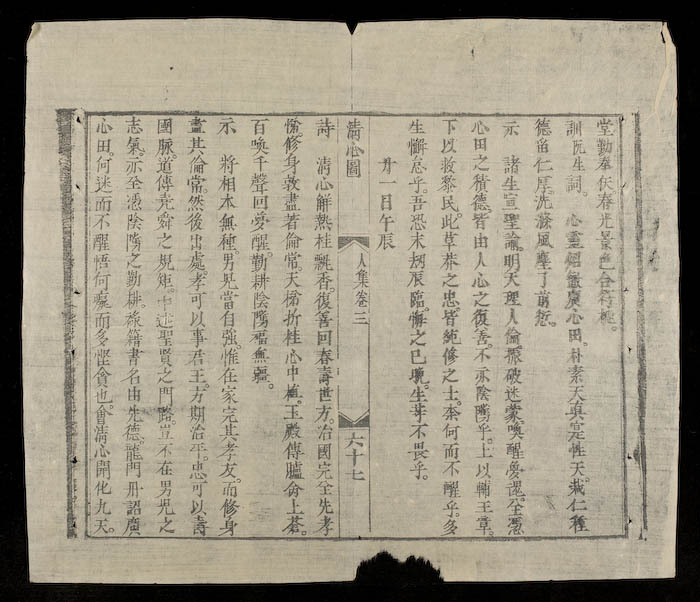 堂勤奉伏春光景色合符極。
訓阮生詞。 心靈穎敏廣心田。朴素天眞定性天。栽仁種
德留仁厚。洗滌風塵了前愆。
示 諸生宣聖諭。明天理人倫。振破迷蒙。喚醒憂還。全憑
心田之積德。皆由人心之復善。不亦陰隲乎。上以輔王章。
下以救黎民。此草莽之忠。皆純修之士。柰何而不醒乎。多
生懈怠乎。吾恐末刼辰臨。懈之已晚。生等不畏乎。
廿一日午辰
淸心圖
人集卷三
六十七
詩 淸心解熱桂飄香。復善回春壽世方。治國完全先孝
悌。修身敦盡著倫常。天梯折桂心中植。玉殿傳臚侖上蒼。
百喚千聲回夢醒。勤耕陰隲福無疆。
示 將相本無種。男兒當自強。惟在家完其孝友。而修身
盡其倫常。然後出處。孝可以事君王。方期治平。忠可以壽
國脈。道傳堯舜之規矩。中述聖賢之門路。豈不在男兒之
志氣。亦全憑陰隲之勤耕。祿籍書名由先德。龍門丹詔廣
心田。何迷而不醒悟。何癡而多慳貪也。會淸心開化九天。